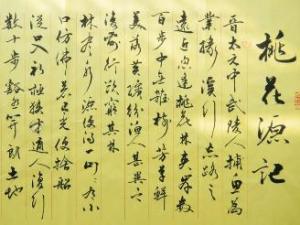 桃花源記
晉太元中武陵人捕魚為
業緣溪行忘路之
遠近忽逢桃花林夾岸數
百步中無雜樹芳草鮮
美落英繽紛漁人甚異之
復前行欲窮其林
林盡水源便得一山有小
口仿佛若有光便捨船
從口入初極狹才通人復行
數十步豁然開朗土地